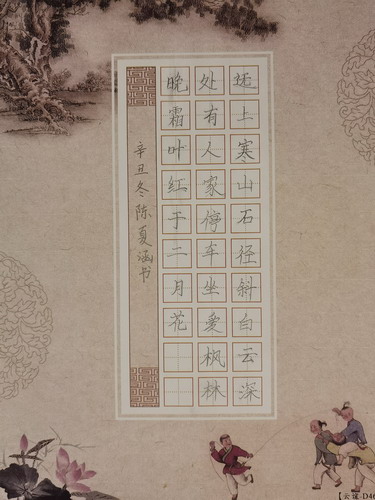 远上寒山石径斜白云深
处有人家停车坐爱枫林
晚霜叶红于二月花
辛丑冬陈夏涵书